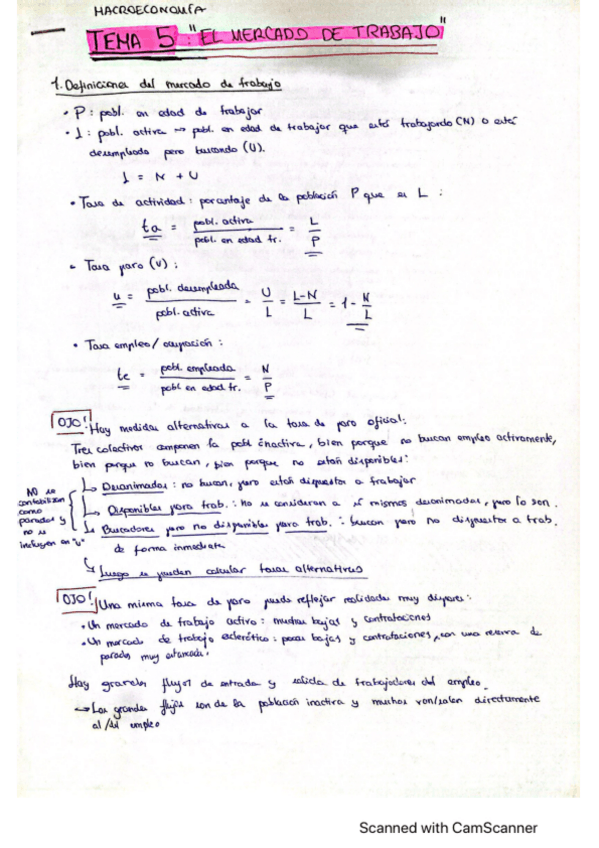 MACROECONOMÍA
TEMA 5: "EL MERCADO DE TRABAJO"
1. Definiciones del mercado de trabajo
• P: pobl. en edad de trabajar
• L: pobl. activa → pobl. en edad de trabajar que está trabajando (N) o está
desempleada pero buscando (U).
L = N + U
• Tasa de actividad: porcentaje de la población P que es L:
ta = pobl. activa / pobl. en edad tr. = L / P
• Tasa paro (u):
u = pobl. desempleada / pobl. activa = U / L = L-N / L = 1 - N / L
• Tasa empleo/ocupación:
te = pobl. empleada / pobl en edad tr. = N / P
OJO! Hay medidas alternativas a la tasa de paro oficial:
Tres colectivos componen la pobl inactiva, bien porque no buscan empleo activamente,
bien porque no buscan, bien porque no están disponibles:
↳ Desanimados: no buscan, pero están dispuestos a trabajar
↳ Disponibles para trab.: no se consideran a sí mismos desanimados, pero lo son.
↳ Buscadores pero no disponibles para trab.: buscan pero no dispuestos a trab.
de forma inmediata
NO se
contabilizan
como
parados y
no se
incluyen en "u"
↳ Luego se pueden calcular tasas alternativas
OJO! Una misma tasa de paro puede reflejar realidades muy dispares:
• Un mercado de trabajo activo: muchas bajas y contrataciones
• Un mercado de trabajo esclerótico: pocas bajas y contrataciones, con una reserva de
parados muy estancada.
Hay grandes flujos de entrada y salida de trabajadores del empleo.
→ Los grandes flujos son de la población inactiva y muchos van/salen directamente
al/del empleo
Scanned with CamScanner